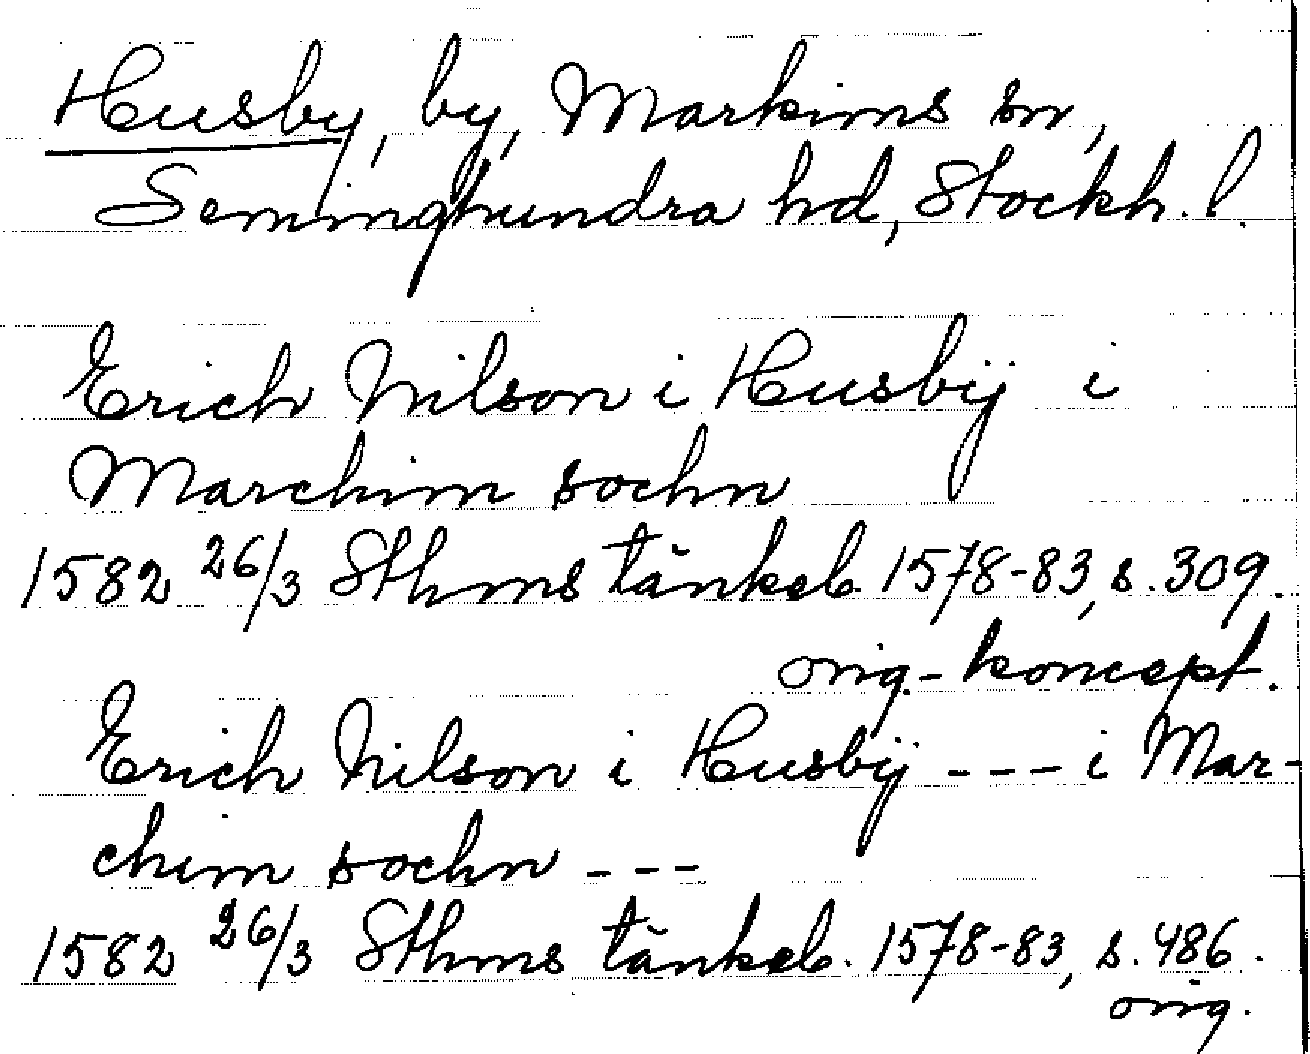 Husby, by, Markims sn,
Seminghundra hd, Stockh. l.
Erich Nilson i Husbÿ i
Marchim sochn
1582 26/3 Sthms tänkeb. 1578-83, s. 309.
orig.-koncept.
Erich Nilson i Husbÿ --- i Mar-
chim sochn ---
1582 26/3 Sthms tänkeb. 1578-83, s. 486.
orig.